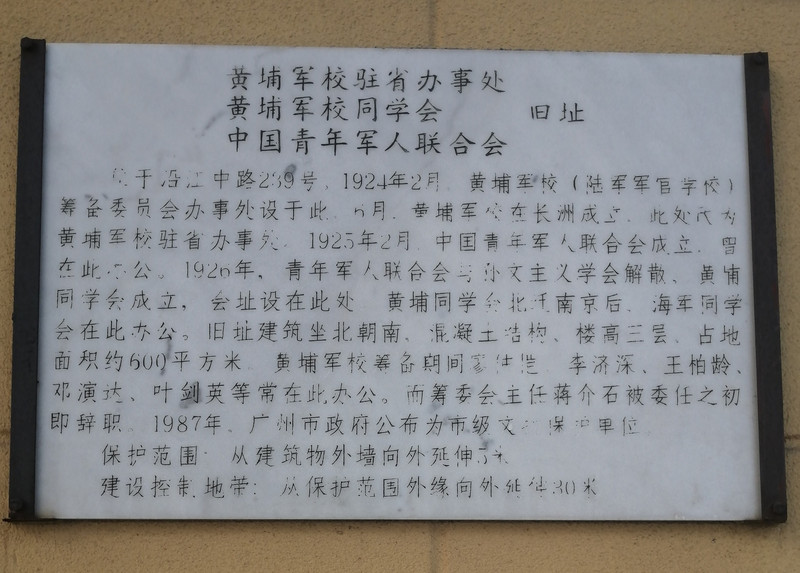 黄埔军校驻省办事处
黄埔军校同学会 旧址
中国青年军人联合会
位于沿江中路239号。1924年2月，黄埔军校（陆军军官学校）
筹备委员会办事处设于此。6月，黄埔军校在长洲成立，此处改为
黄埔军校驻省办事处。1925年2月，中国青年军人联合会成立，曾
在此办公。1926年，青年军人联合会与孙文主义学会解散，黄埔
同学会成立，会址设在此处。黄埔同学会北迁南京后，海军同学
会在此办公。旧址建筑坐北朝南，混凝土结构、楼高三层、占地
面积约600平方米。黄埔军校筹备期间廖仲恺、李济深、王柏龄、
邓演达、叶剑英等常在此办公。而筹委会主任蒋介石被委任之初
即辞职。1987年，广州市政府公布为市级文物保护单位。
保护范围：从建筑物外墙向外延伸5米
建设控制地带：从保护范围外缘向外延伸30米